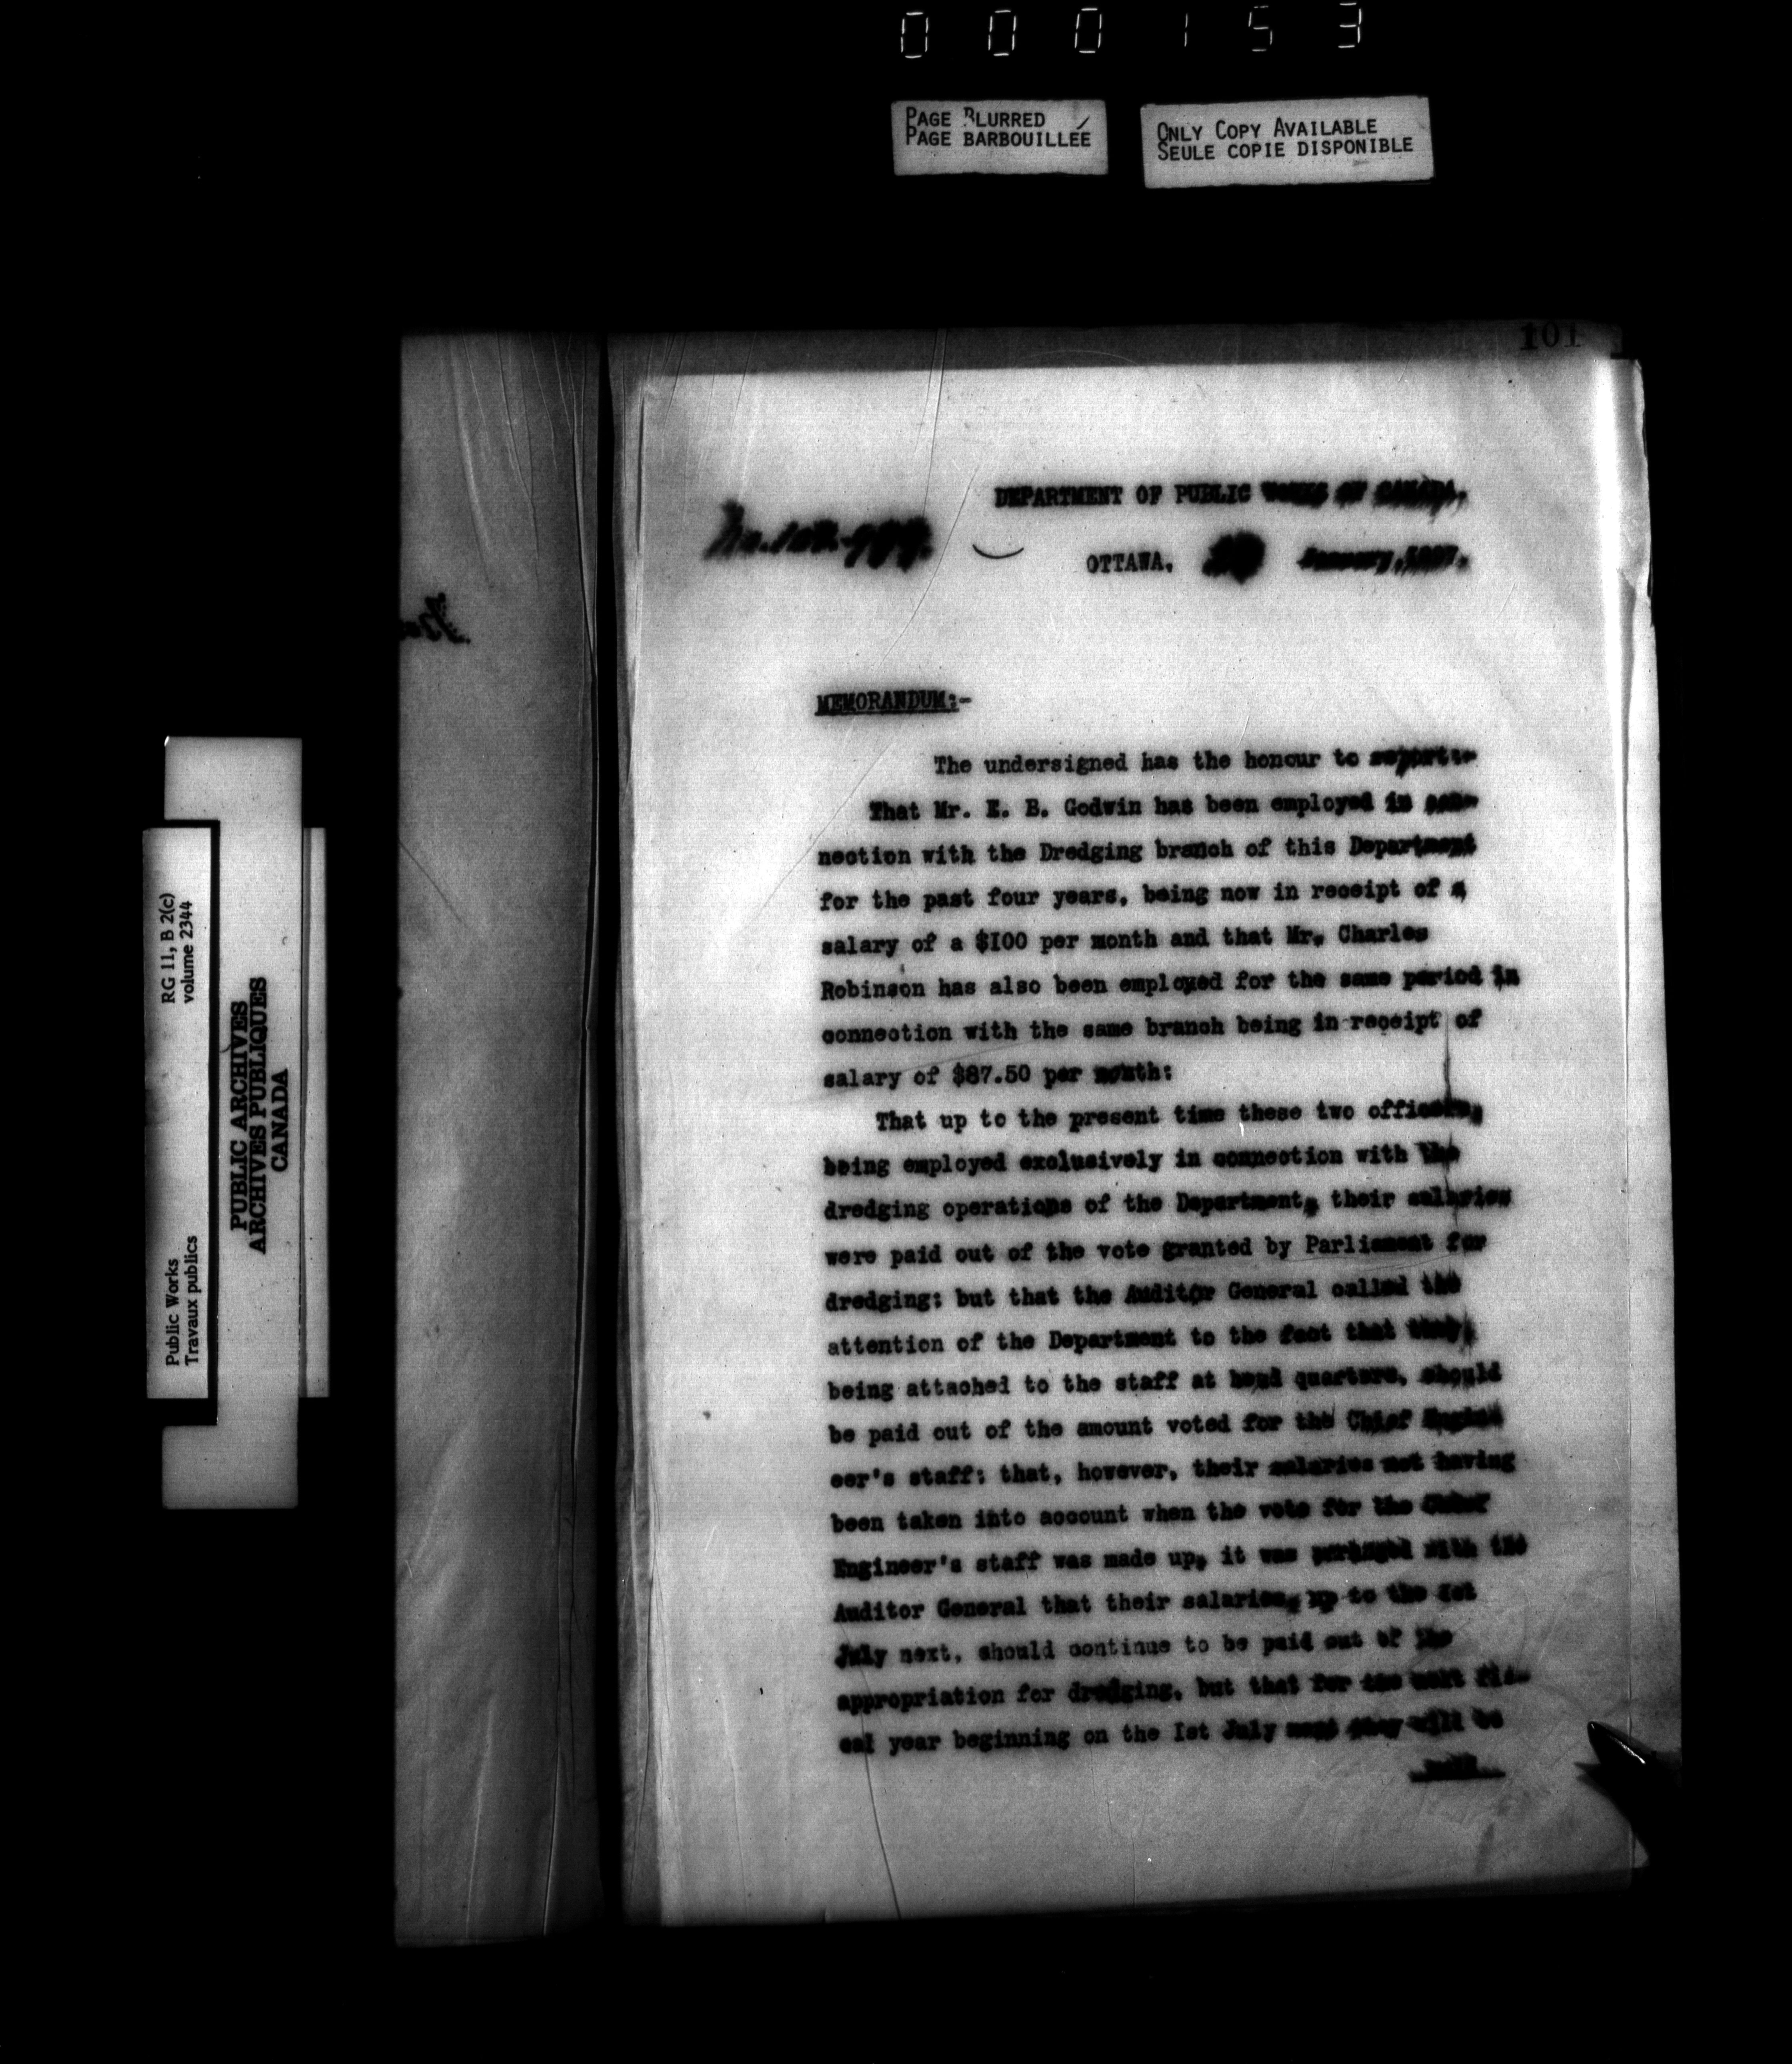 000153
PAGE BLURRED
PAGE BARBOUILLÉE
ONLY COPY AVAILABLE
SEULE COPIE DISPONIBLE
101
DEPARTMENT OF PUBLIC WORKS OF CANADA.
OTTAWA, January, 
MEMORANDUM:-
The undersigned has the honour to report:-
That Mr. E. B. Godwin has been employed in con-
nection with the Dredging branch of this Department
for the past four years, being now in receipt of a
salary of a $I00 per month and that Mr. Charles
Robinson has also been employed for the same period in
connection with the same branch being in receipt of
salary of $87.50 per month:
That up to the present time these two officers,
being employed exclusively in connection with the
dredging operations of the Department, their salaries
were paid out of the vote granted by Parliament for
dredging; but that the Auditor General called the
attention of the Department to the fact that they,
being attached to the staff at head quarters, should
be paid out of the amount voted for the Chief Engin-
eer's staff; that, however, their salaries not having
been taken into account when the vote for the Chief
Engineer's staff was made up, it was with the
Auditor General that their salaries, up to the Ist
July next, should continue to be paid out of the
appropriation for dredging, but that for the next fis-
cal year beginning on the Ist July next they will be
RG 11, B 2(c)
volume 2344
Public Works
Travaux publics
PUBLIC ARCHIVES
ARCHIVES PUBLIQUES
CANADA